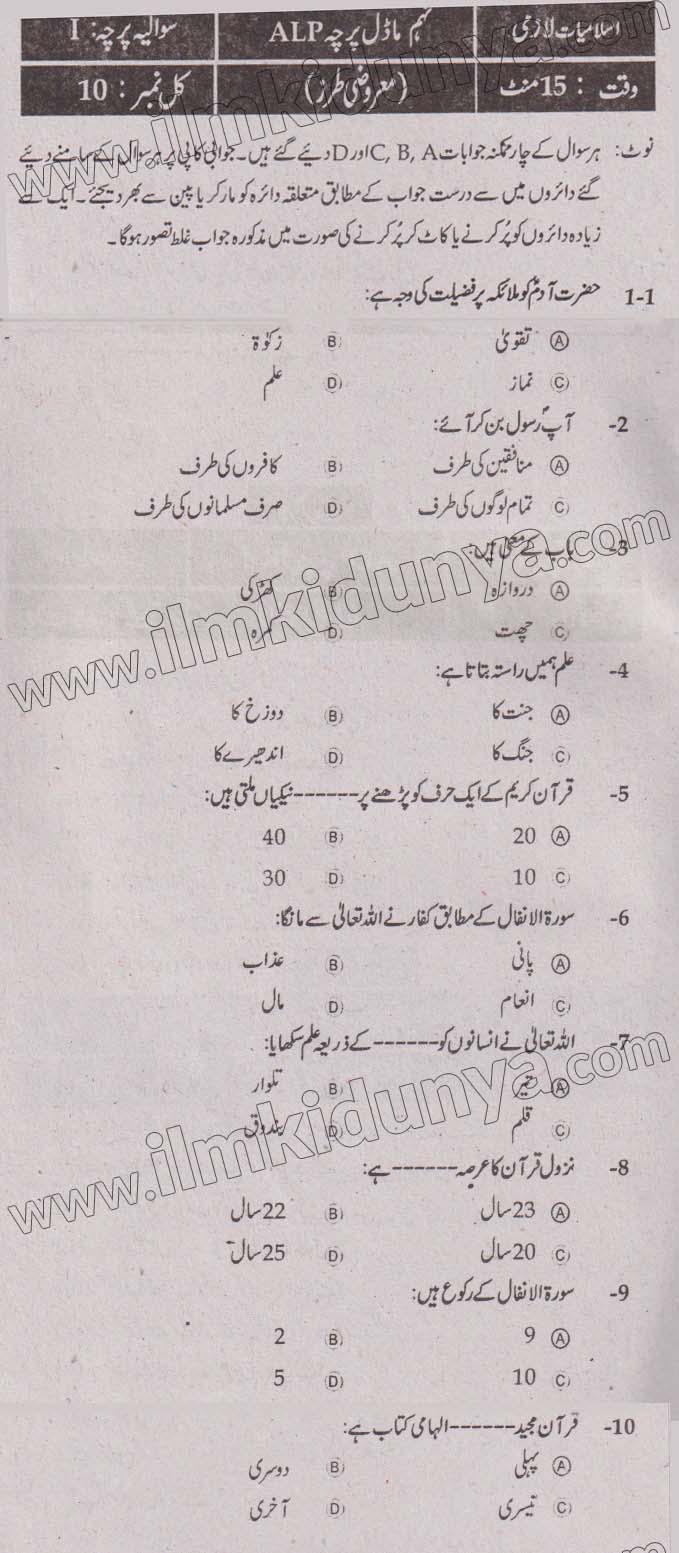 اسلامیات لازمی نہم ماڈل پرچہ ALP سوالیہ پرچہ: I
وقت : 15 منٹ (معروضی طرز) کل نمبر : 10
نوٹ: ہر سوال کے چار ممکنہ جوابات C, B, A اور D دیئے گئے ہیں۔ جوابی کاپی پر ہر سوال کے سامنے دیئے
گئے دائروں میں سے درست جواب کے مطابق متعلقہ دائرہ کو مارکر یا پین سے بھر دیجئے۔ ایک سے
زیادہ دائروں کو پُر کرنے یا کاٹ کر پُر کرنے کی صورت میں مذکورہ جواب غلط تصور ہوگا۔
1-1 حضرت آدمؑ کو ملائکہ پر فضیلت کی وجہ ہے:
(A) تقویٰ (B) زکوٰۃ
(C) نماز (D) علم
2- آپؐ رسول بن کر آئے:
(A) منافقین کی طرف (B) کافروں کی طرف
(C) تمام لوگوں کی طرف (D) صرف مسلمانوں کی طرف
3- باب کے معنی ہیں:
(A) دروازہ (B) کھڑکی
(C) چھت (D) کمرہ
4- علم ہمیں راستہ بتاتا ہے:
(A) جنت کا (B) دوزخ کا
(C) جنگ کا (D) اندھیرے کا
5- قرآن کریم کے ایک حرف کو پڑھنے پر ------ نیکیاں ملتی ہیں:
(A) 20 (B) 40
(C) 10 (D) 30
6- سورۃ الانفال کے مطابق کفار نے اللہ تعالیٰ سے مانگا:
(A) پانی (B) عذاب
(C) انعام (D) مال
7- اللہ تعالیٰ نے انسانوں کو ------ کے ذریعہ علم سکھایا:
(A) تیر (B) تلوار
(C) قلم (D) بندوق
8- نزول قرآن کا عرصہ ------ ہے:
(A) 23 سال (B) 22 سال
(C) 20 سال (D) 25 سال
9- سورۃ الانفال کے رکوع ہیں:
(A) 9 (B) 2
(C) 10 (D) 5
10- قرآن مجید ------ الہامی کتاب ہے:
(A) پہلی (B) دوسری
(C) تیسری (D) آخری
www.ilmkidunya.com
www.ilmkidunya.com
www.ilmkidunya.com